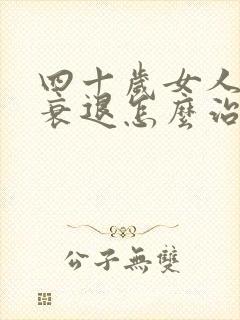 四十歲女人
衰退怎麼治
公子無雙